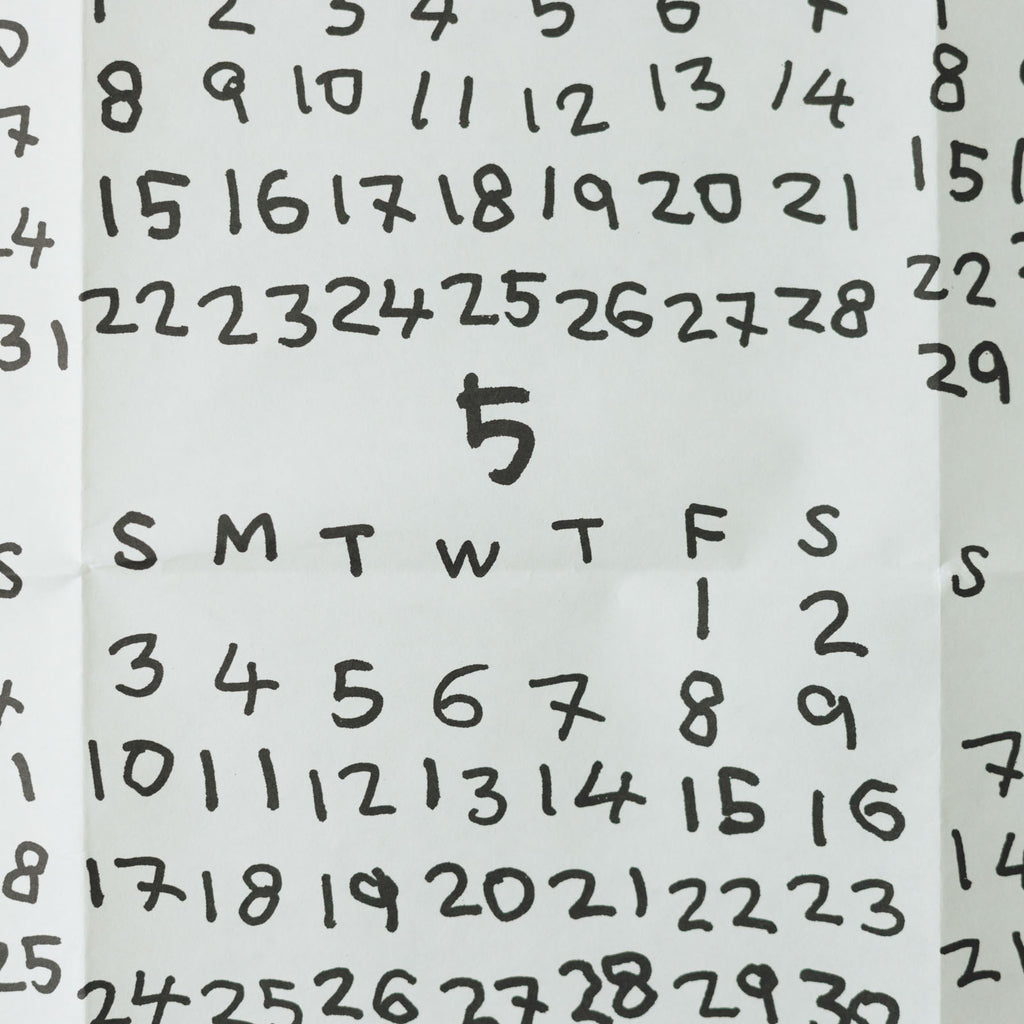 1 2 3 4 5 6 7
8 9 10 11 12 13 14
15 16 17 18 19 20 21
22 23 24 25 26 27 28
5
S M T W T F S
1 2
3 4 5 6 7 8 9
10 11 12 13 14 15 16
17 18 19 20 21 22 23
24 25 26 27 28 29 30
1
8
15
22
29
S
7
14
21
31
S
25